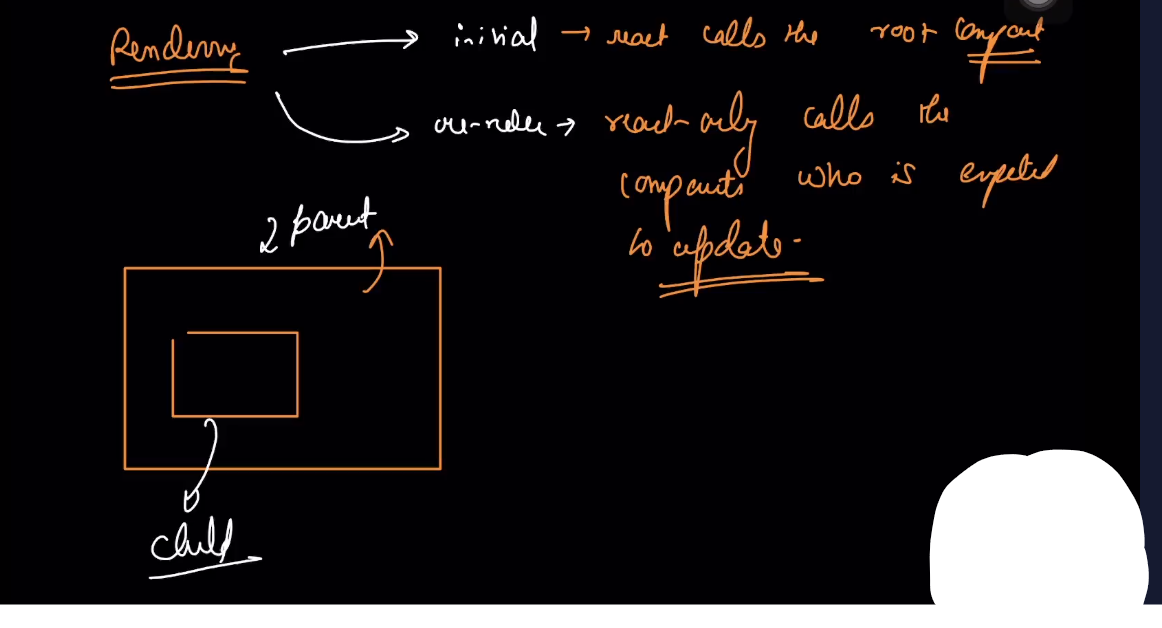 Rendering → initial → react calls the root Component
re-render → react only calls the
components who is expected
to update.
2 parent
child